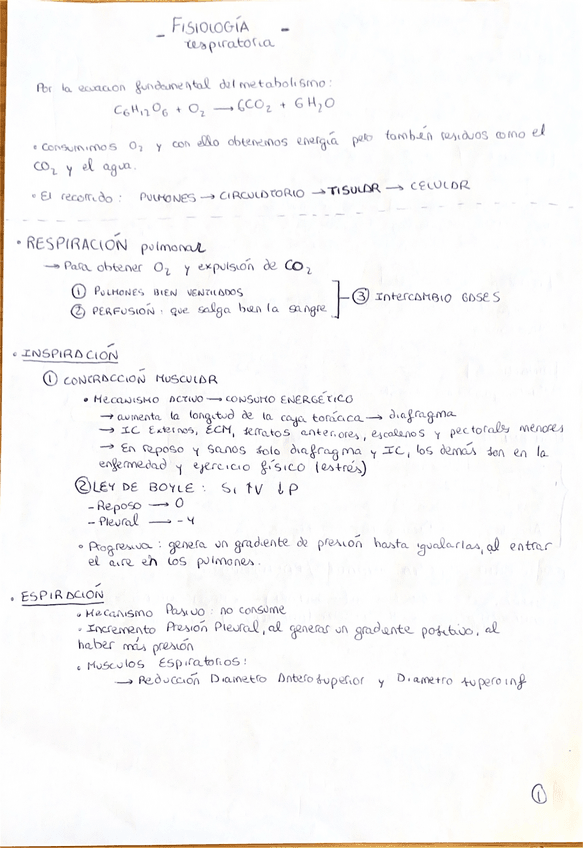 - FISIOLOGÍA -
respiratoria
Por la ecuacion fundamental del metabolismo:
C6H12O6 + O2 → 6CO2 + 6H2O
• Consumimos O2 y con ello obtenemos energía pero también residuos como el
CO2 y el agua.
• El recorrido: PULMONES → CIRCULATORIO → TISULAR → CELULAR
• RESPIRACIÓN pulmonar
→ Para obtener O2 y expulsión de CO2
① PULMONES BIEN VENTILADOS
② PERFUSIÓN: que salga bien la sangre
③ INTERCAMBIO GASES
• INSPIRACIÓN
① CONTRACCIÓN MUSCULAR
• MECANISMO ACTIVO → CONSUMO ENERGÉTICO
→ aumenta la longitud de la caja torácica → diafragma
→ IC Externos, ECM, serratos anteriores, escalenos y pectorales menores
→ En reposo y sanos solo diafragma y IC, los demás son en la
enfermedad y ejercicio físico (estrés)
② LEY DE BOYLE: Si ↑V ↓P
- Reposo → 0
- Pleural → -4
• Progresiva: genera un gradiente de presión hasta igualarlas, al entrar
el aire en los pulmones.
• ESPIRACIÓN
• Mecanismo Pasivo: no consume
• Incremento Presión Pleural, al generar un gradiente positivo, al
haber más presión
• Musculos Espiratorios:
→ Reducción Diametro Anterosuperior y Diametro superoinf
①